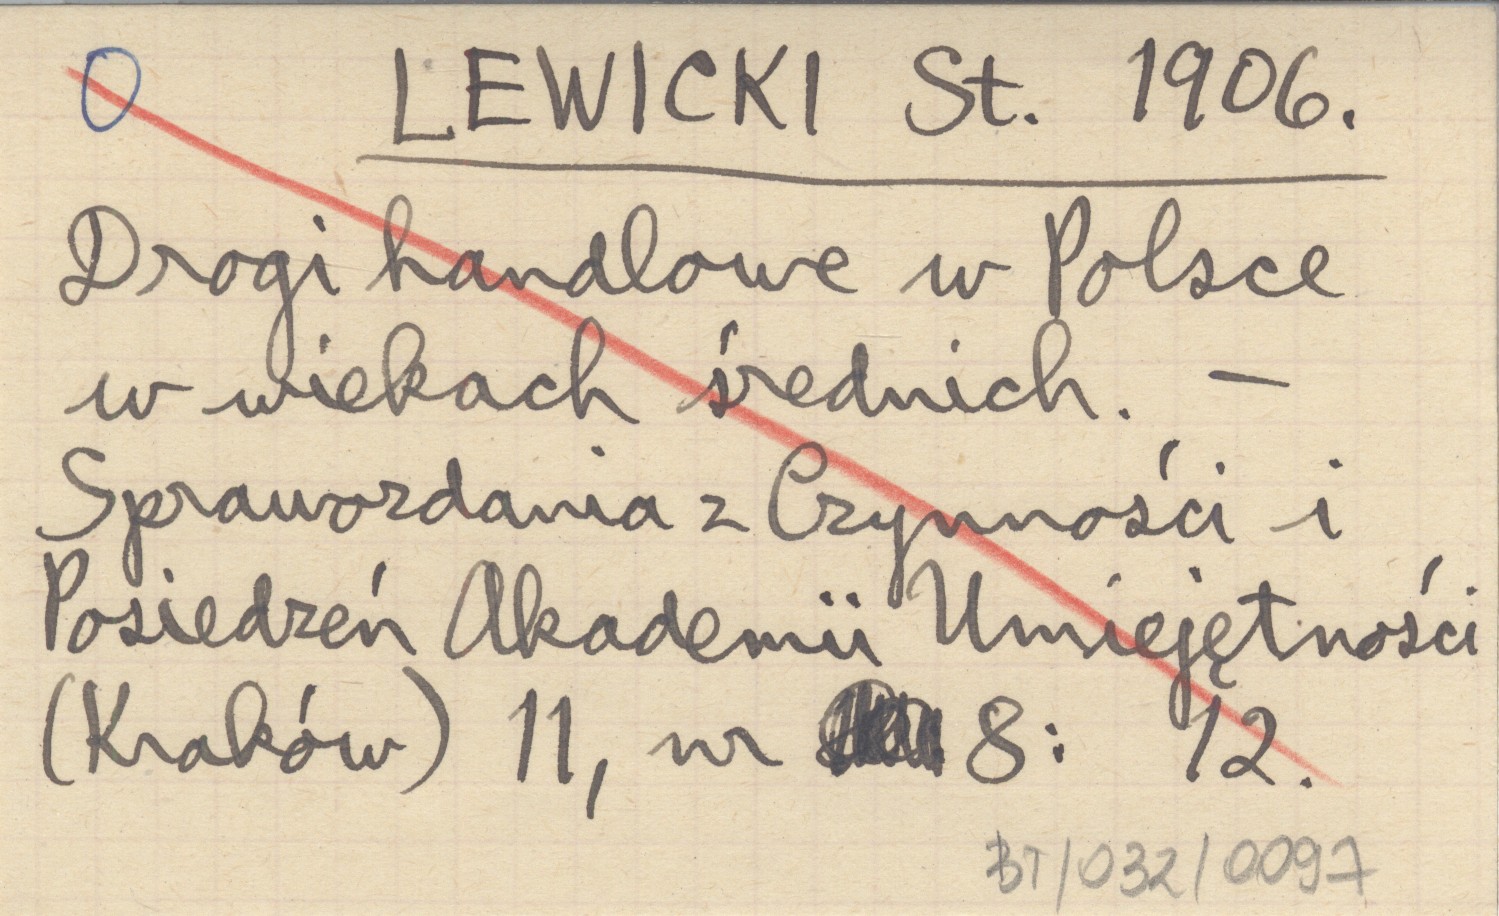 0 LEWICKI St. 1906.
Drogi handlowe w Polsce
w wiekach średnich. —
Sprawozdania z Czynności i
Posiedzeń Akademii Umiejętności
(Kraków) 11, nr 8: 12.
BT/032/0097